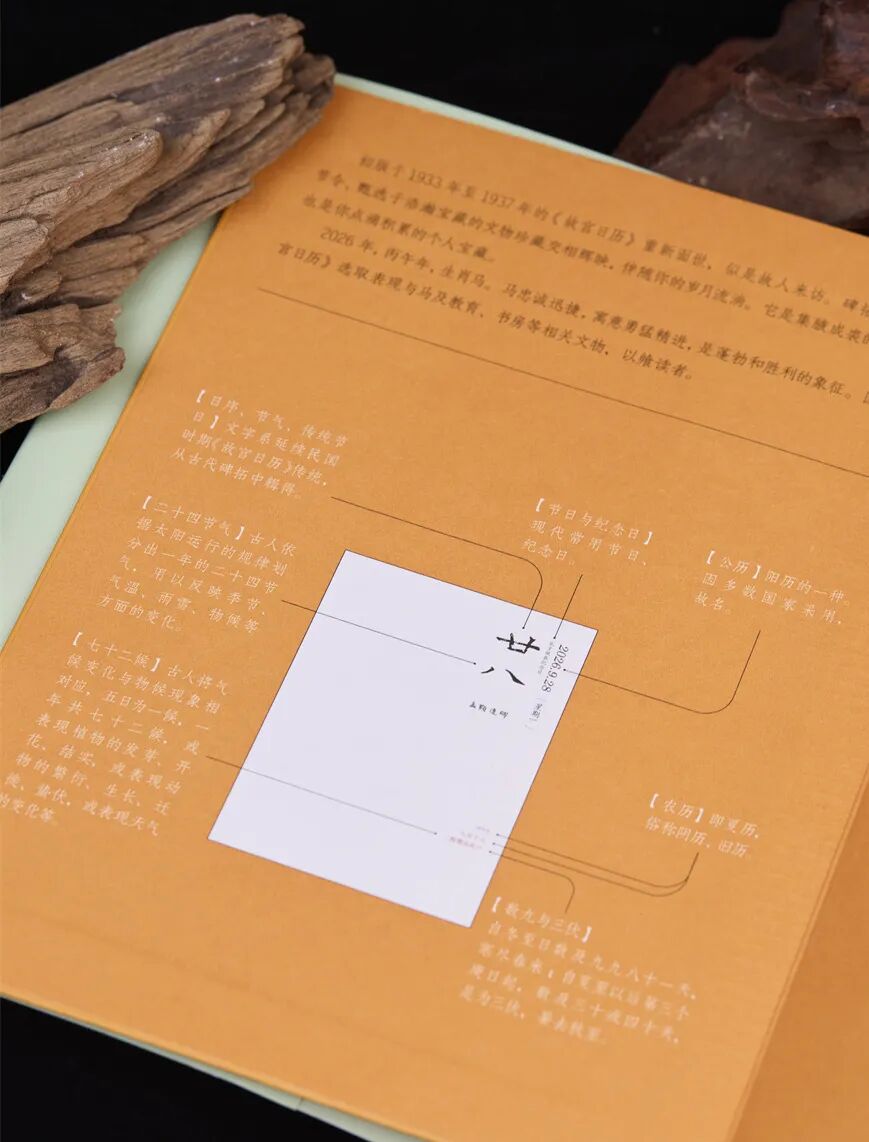 始族于1933年至1937年的《故宫日历》重新面世，似是故人来访。碑拓
节令、甄选于浩瀚宝藏的文物珍藏交相辉映，伴随你的岁月流淌。它是集腋成裘的
也是你点滴积累的个人宝藏。
2026年，丙午年，生肖马。马忠诚迅捷，寓意勇猛精进，是蓬勃和胜利的象征。
宫日历》选取表现与马及教育、书房等相关文物，以飨读者。
【日序、节气、传统节
日】文字系延续民国
时期《故宫日历》传统，
从古代碑拓中辑得。
【二十四节气】古人依
据太阳运行的规律划
分出一年的二十四节
气，用以反映季节、
气温、雨雪、物候等
方面的变化。
【七十二候】古人将气
候变化与物候现象相
对应，五日为一候，一
年共七十二候，或
表现植物的发芽、开
花、结实，或表现动
物的繁衍、生长、迁
徙、蛰伏，或表现天气
的变化等。
【节日与纪念日】
现代常用节日、
纪念日。
【公历】阳历的一种。
因多数国家采用，
故名。
廿八
2026.9.28
星期一
【农历】即夏历，
俗称阴历、旧历。
【数九与三伏】
自冬至日数及九九八十一天，
寒尽春来；自夏至以后第三个
庚日起，数及三十或四十天，
是为三伏，暑去秋至。